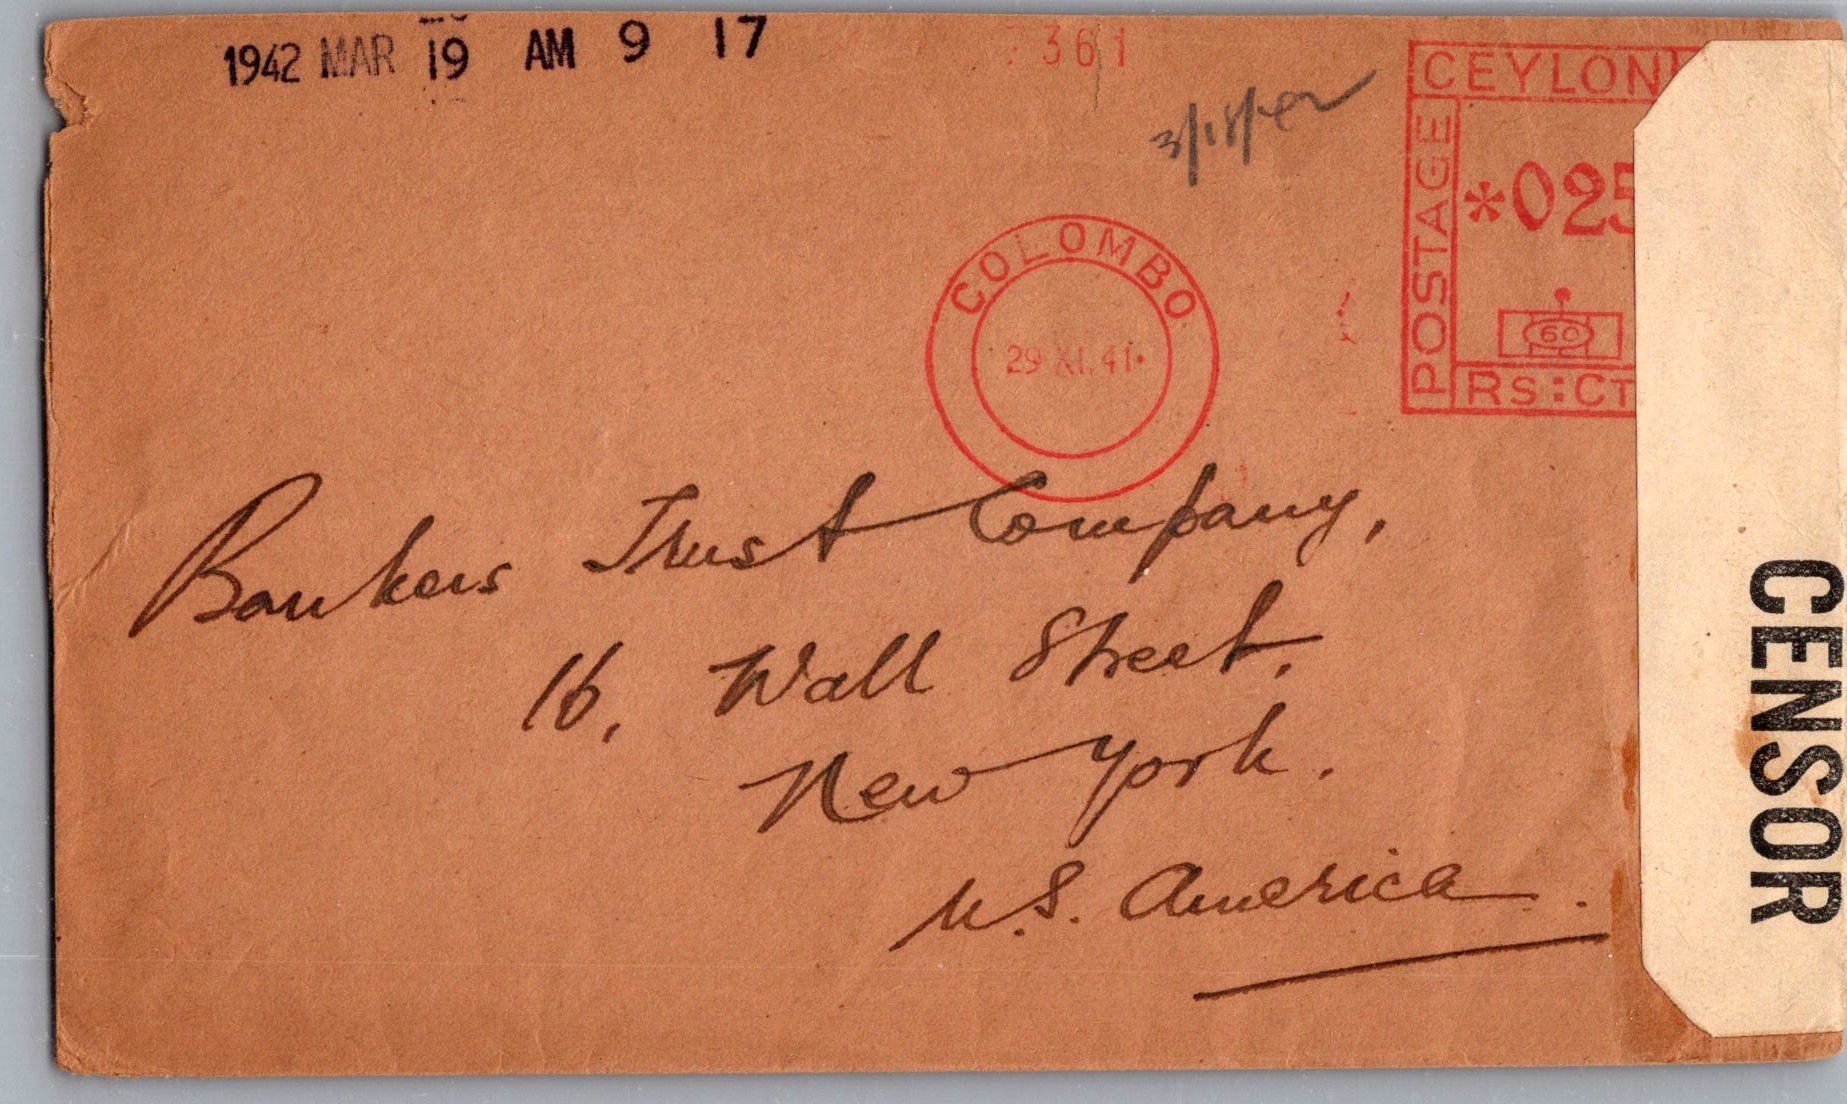 1942 MAR 19 AM 9 17
361
3/18/42
CEYLON
POSTAGE
*025
60
Rs:CT
COLOMBO
29 XI. 41
Bankers Trust Company,
16, Wall Street.
New York.
U.S. America.
CENSOR